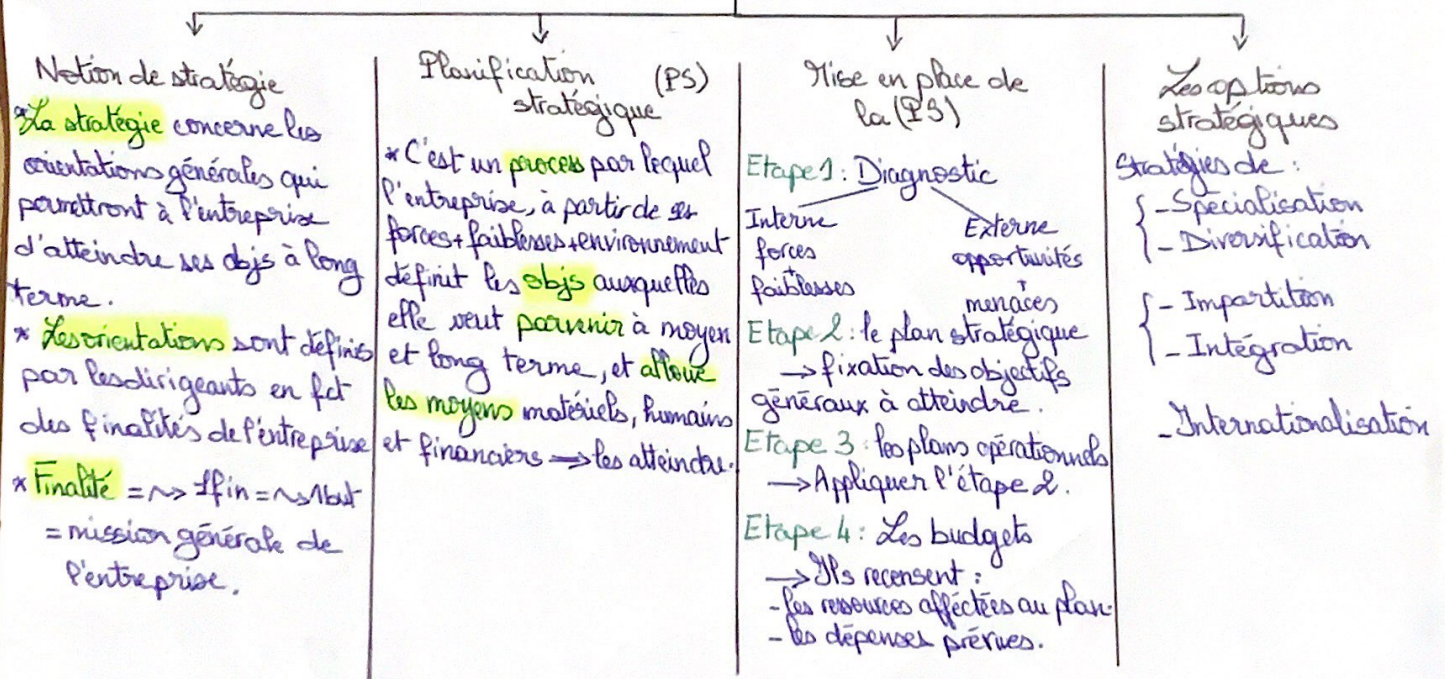 Notion de stratégie
*La stratégie concerne les
orientations générales qui
permettront à l'entreprise
d'atteindre ses objs à long
terme.
* Les orientations sont définies
par les dirigeants en fct
des finalités de l'entreprise
* Finalité = ~> 1 fin = ~> 1 but
= mission générale de
l'entreprise.
Planification (PS)
stratégique
* C'est un process par lequel
l'entreprise, à partir de ses
forces+faiblesses+environnement
définit les objs auxquelles
elle veut parvenir à moyen
et long terme, et alloue
les moyens matériels, humains
et financiers → les atteindre.
Mise en place de
la (PS)
Etape 1 : Diagnostic
Interne Externe
forces opportunités
+ +
faiblesses menaces
Etape 2 : le plan stratégique
→ fixation des objectifs
généraux à atteindre.
Etape 3 : les plans opérationnels
→ Appliquer l'étape 2.
Etape 4 : Les budgets
→ Ils recensent :
- les ressources afféctées au plan.
- les dépenses prévues.
Les options
stratégiques
Stratégies de :
{ - Spécialisation
- Diversification
{ - Impartition
- Intégration
- Internationalisation